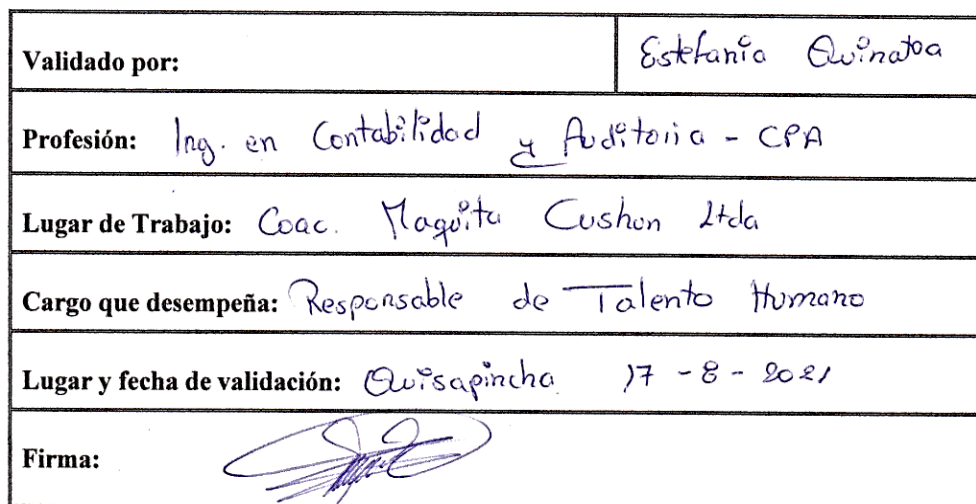 Validado por: Estefanía Quinatoa
Profesión: Ing. en Contabilidad y Auditoria - CPA
Lugar de Trabajo: Coac. Maquita Cushun Ltda
Cargo que desempeña: Responsable de Talento Humano
Lugar y fecha de validación: Quisapincha 17 - 8 - 2021
Firma: